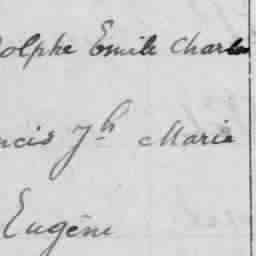 olphe Emile Charles
ncis Jh Marie
Eugène